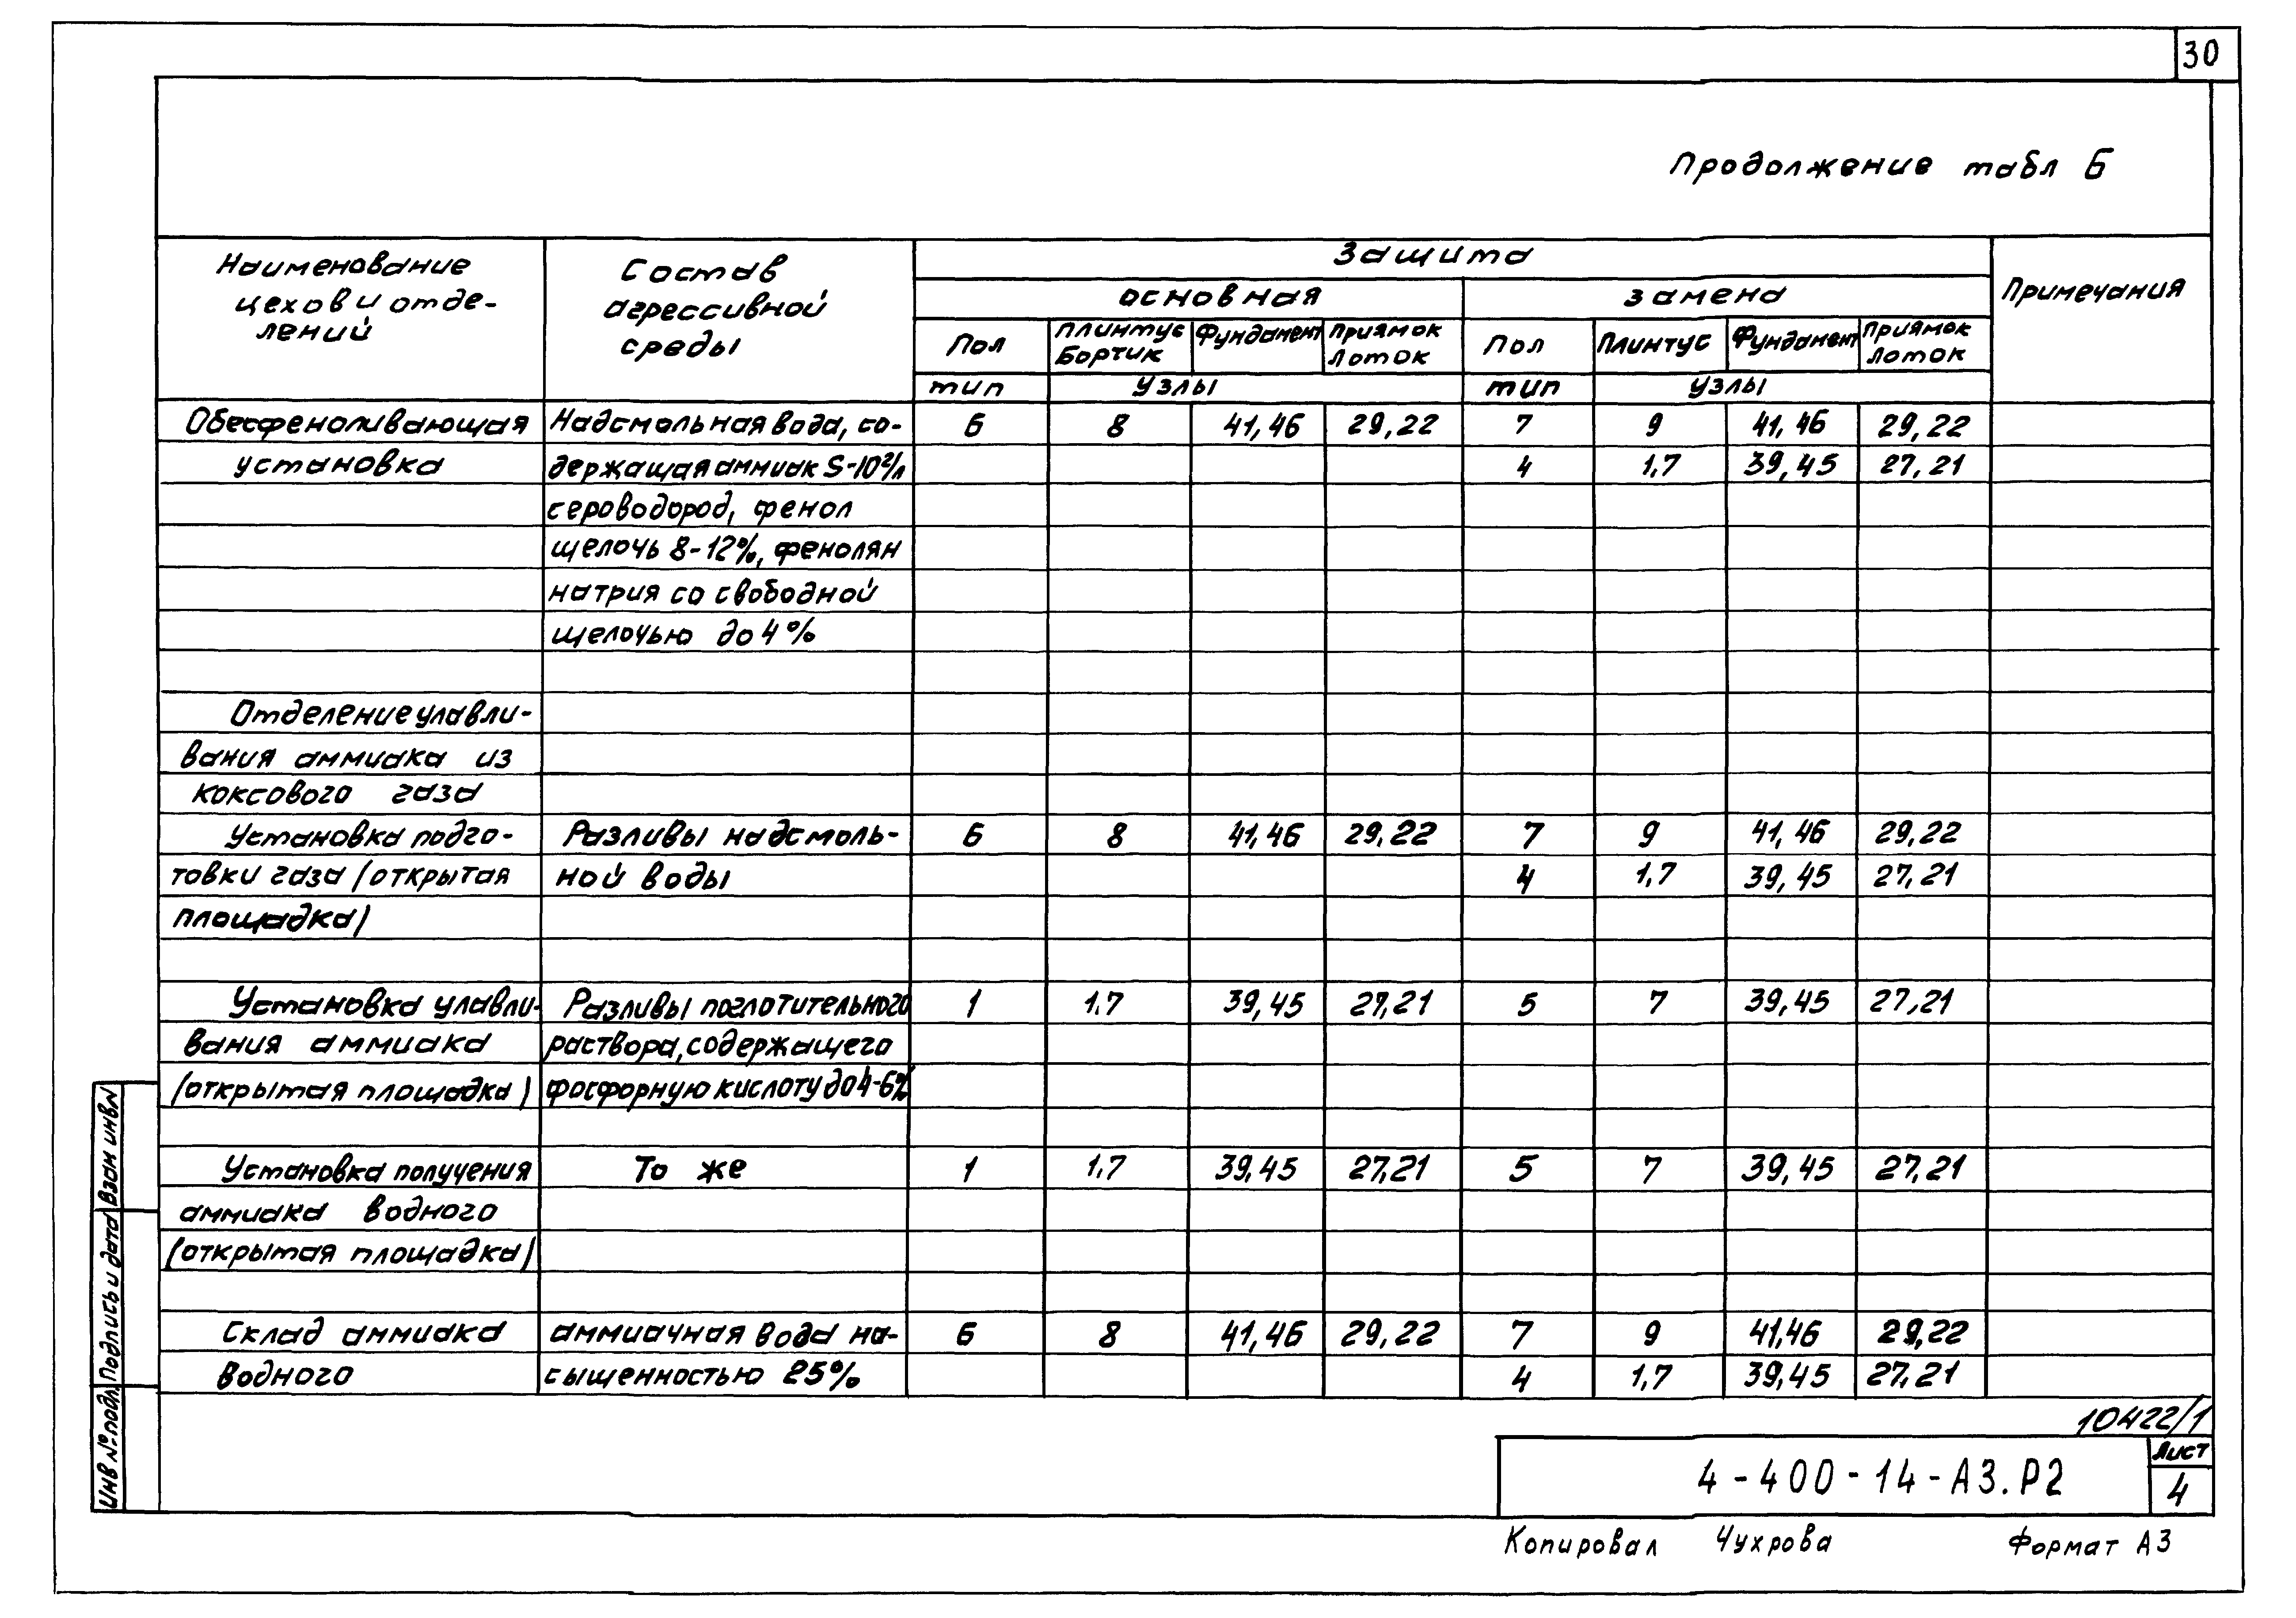 30
Продолжение табл Б
Наименование цехов и отде- лений | Состав агрессивной среды | Защита | Примечания
основная | замена
Пол | Плинтус Бортик | Фундамент | Приямок Лоток | Пол | Плинтус | Фундамент | Приямок Лоток
тип | узлы | тип | узлы
Обесфеноливающая | Надсмольная вода, со- | 6 | 8 | 41,46 | 29,22 | 7 | 9 | 41,46 | 29,22
установка | держащая аммиак 5-10г/л | 4 | 1,7 | 39,45 | 27,21
сероводород, фенол
щелочь 8-12%, фенолян
натрия со свободной
щелочью до 4%
Отделение улавли-
вания аммиака из
коксового газа
Установка подго- | Разливы надсмоль- | 6 | 8 | 41,46 | 29,22 | 7 | 9 | 41,46 | 29,22
товки газа (открытая | ной воды | 4 | 1,7 | 39,45 | 27,21
площадка)
Установка улавли- | Разливы поглотительного | 1 | 1,7 | 39,45 | 27,21 | 5 | 7 | 39,45 | 27,21
вания аммиака | раствора, содержащего
(открытая площадка) | фосфорную кислоту до 4-6%
Установка получения | То же | 1 | 1,7 | 39,45 | 27,21 | 5 | 7 | 39,45 | 27,21
аммиака водного
(открытая площадка)
Склад аммиака | аммиачная вода на- | 6 | 8 | 41,46 | 29,22 | 7 | 9 | 41,46 | 29,22
водного | сыщенностью 25% | 4 | 1,7 | 39,45 | 27,21
10422/1
4-400-14-АЗ.Р2
Лист
4
Копировал Чухрова Формат А3
Инв № подл
Подпись и дата
Взам инв N